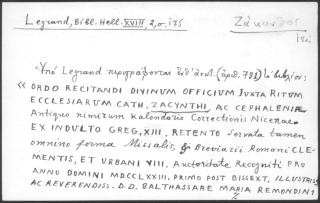 Legrand, Bibl. Hell. XVIII, 2, σ. 175
Ζάκυνθος
Ὑπὸ Legrand περιγράφονται ὑπ' ἀριθ. (ἀριθ. 798)
« ORDO RECITANDI DIVINUM OFFICIUM JUXTA RITUM
ECCLESIARUM CATH. ZACYNTHI, AC CEPHALENIAE
Antiquo nimirum Kalendario Correctionis Nicenae
EX INDULTO GREG. XIII. RETENTO servata tamen
omnino forma Missalis, & Breviarii Romani CLE-
MENTIS, ET URBANI VIII. Auctoritate Recogniti PRO
ANNO DOMINI MDCCLXXIII. PRIMO POST BISSEXT. ILLUSTRISS.
AC REVERENDISS. D.D. BALTHASSARE MARIA REMONDINI